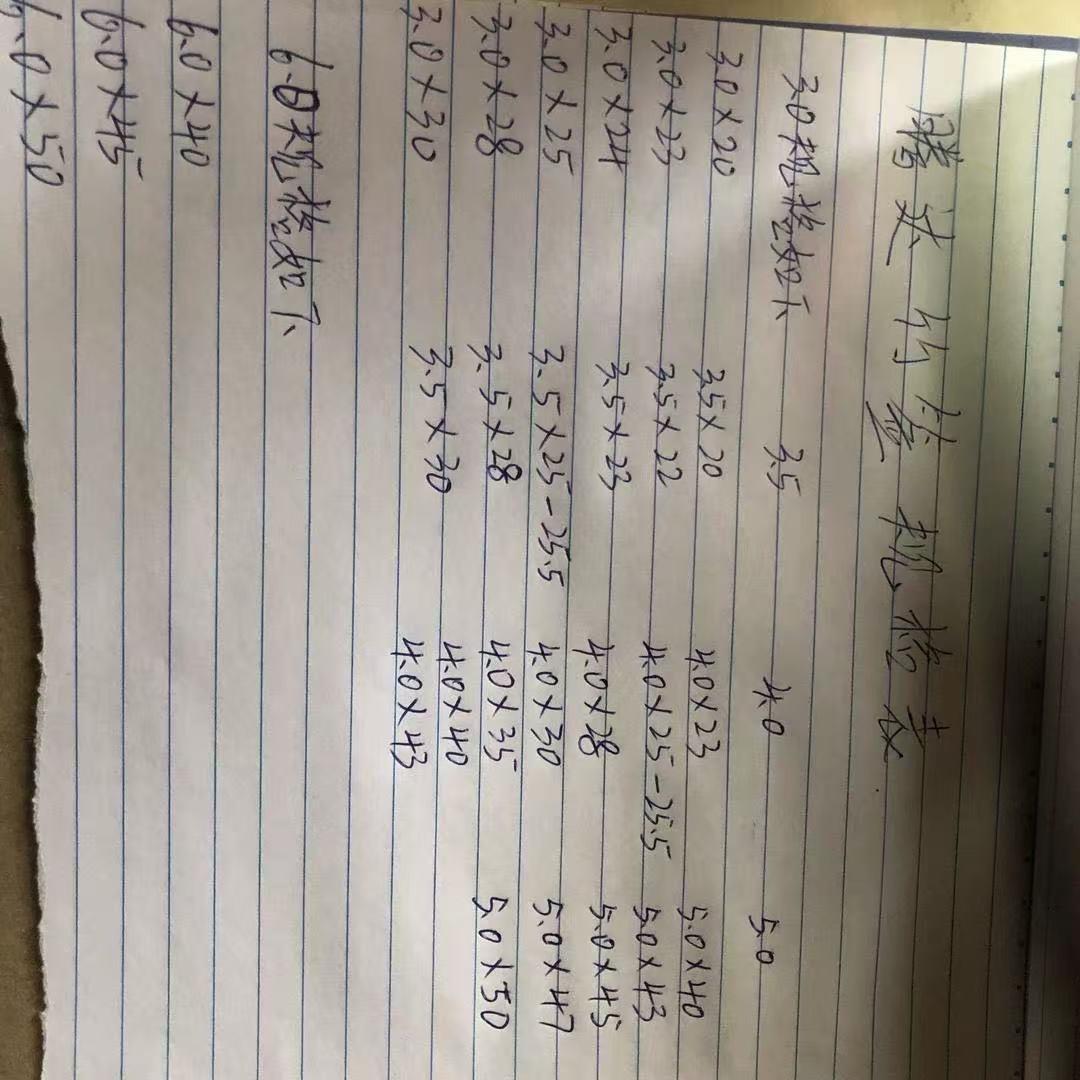 腾达竹签规格表
3.0规格如下 3.5 4.0 5.0
3.0×20 3.5×20 4.0×23 5.0×40
3.0×23 3.5×22 4.0×25-25.5 5.0×43
3.0×24 3.5×23 4.0×28 5.0×45
3.0×25 3.5×25-25.5 4.0×30 5.0×47
3.0×28 3.5×28 4.0×35 5.0×50
3.0×30 3.5×30 4.0×40
4.0×43
6.0规格如下
6.0×40
6.0×45
6.0×50